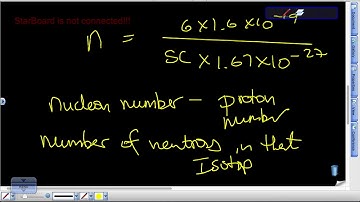 StarBoard is not connected!!!
n = 6 × 1.6 × 10⁻¹⁹
SC × 1.67 × 10⁻²⁷
nucleon number – proton number
number of neutrons in that
Isotop